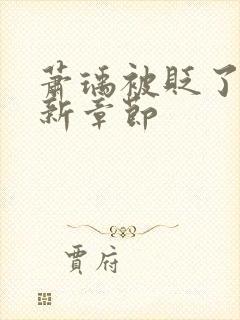 萧瑀被贬了
新章节
贾府